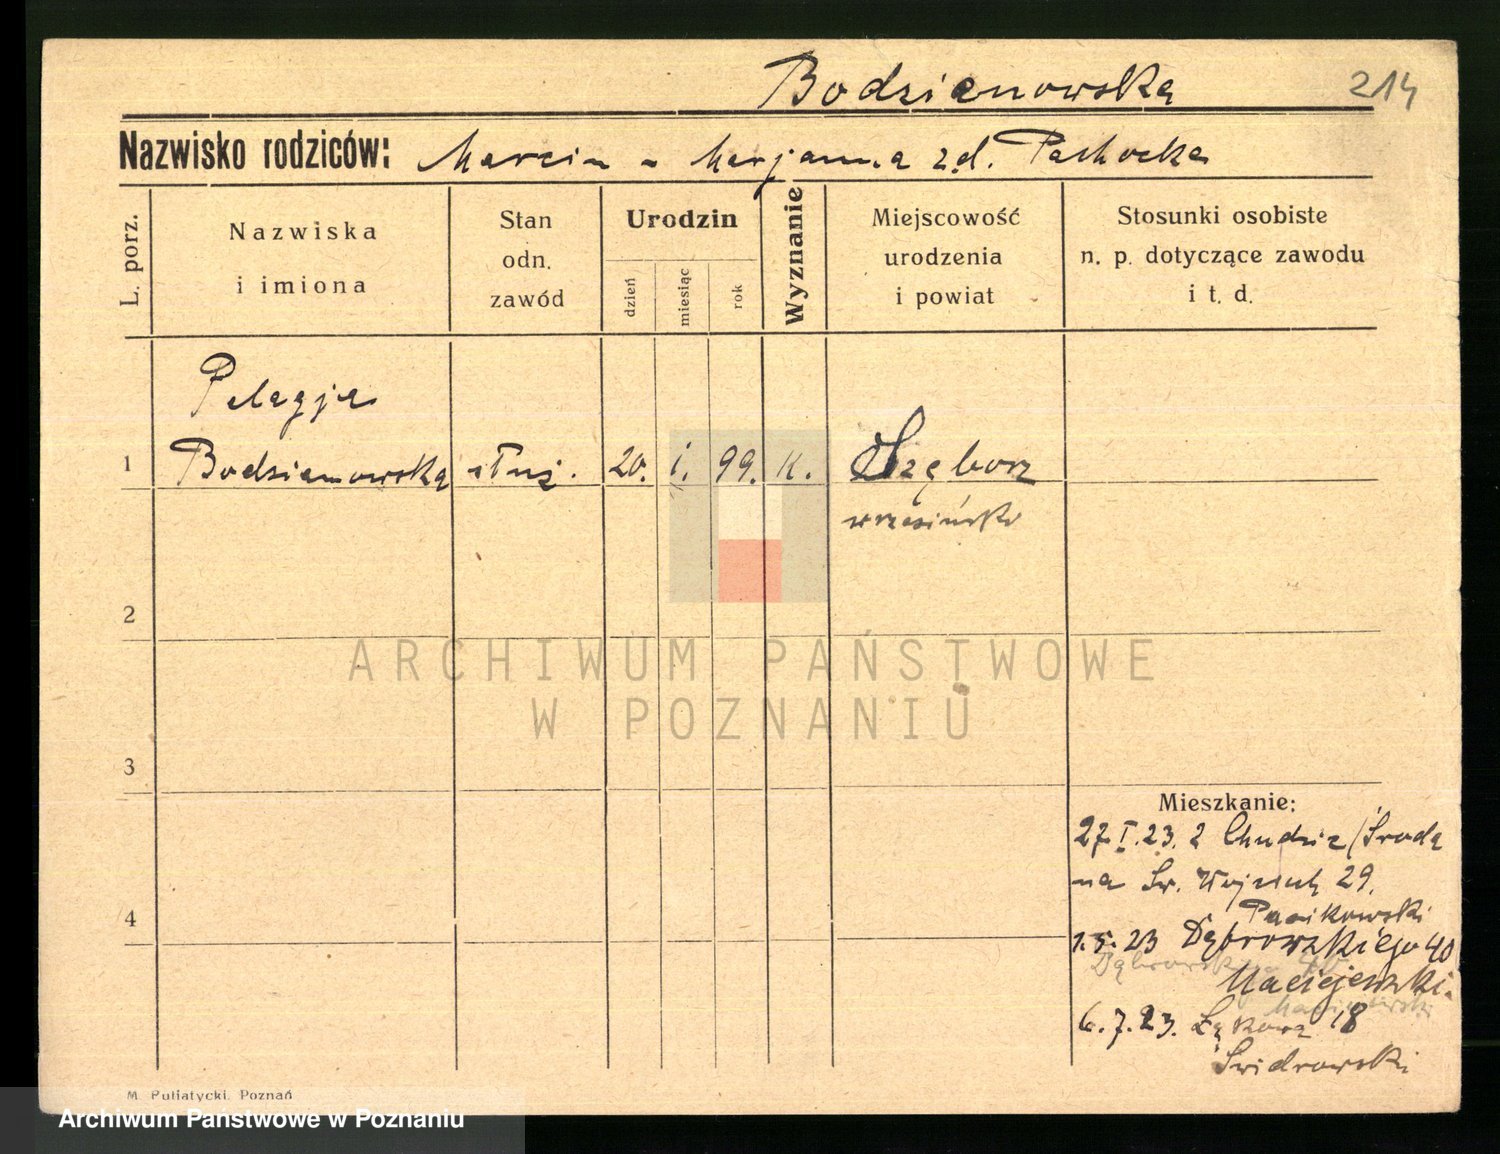 Bodzianowska
214
Nazwisko rodziców: Marcin - Marjanna z d. Pachocka
L. porz.
Nazwiska
i imiona
Stan
odn.
zawód
Urodzin
dzień
miesiąc
rok
Wyznanie
Miejscowość
urodzenia
i powiat
Stosunki osobiste
n. p. dotyczące zawodu
i t. d.
Pelagja
1 Bodzianowska służ. 20. I. 99. K.
wrzesiński
2
ARCHIWUM PAŃSTWOWE
W POZNANIU
3
Mieszkanie:
27.I.23. z Chudzic/Środa
na Św. Wojciech 29.
4
1.5.23 Dąbrowskiego 40
Maciejewski.
6.7.23. Łąkowa 18
Świdrowski
M. Putiatycki, Poznań
Archiwum Państwowe w Poznaniu